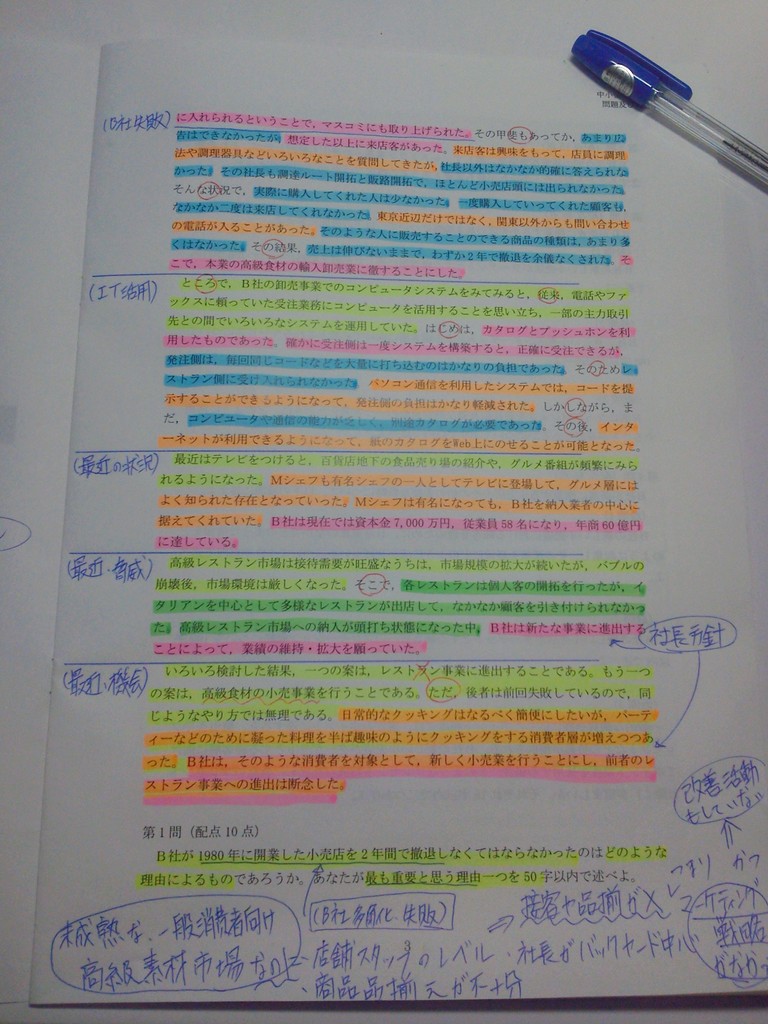 中小
問題及
(B社失敗)
に入れられるということで，マスコミにも取り上げられた。その甲斐もあってか，あまり広
告はできなかったが，想定した以上に来店客があった。来店客は興味をもって，店員に調理
法や調理器具などいろいろなことを質問してきたが，社長以外はなかなか的確に答えられな
かった。その社長も調達ルート開拓と販路開拓で，ほとんど小売店頭には出られなかった。
そんな状況で，実際に購入してくれた人は少なかった。一度購入していってくれた顧客も，
なかなか二度は来店してくれなかった。東京近辺だけではなく，関東以外からも問い合わせ
の電話が入ることがあった。そのような人に販売することのできる商品の種類は，あまり多
くはなかった。その結果，売上は伸びないままで，わずか2年で撤退を余儀なくされた。そ
こで，本業の高級食材の輸入卸売業に徹することにした。
(IT活用)
ところで，B社の卸売事業でのコンピュータシステムをみてみると，従来，電話やファ
ックスに頼っていた受注業務にコンピュータを活用することを思い立ち，一部の主力取引
先との間でいろいろなシステムを運用していた。はじめは，カタログとプッシュホンを利
用したものであった。確かに受注側は一度システムを構築すると，正確に受注できるが，
発注側は，毎回同じコードなどを大量に打ち込むのはかなりの負担であった。そのためレ
ストラン側に受け入れられなかった。パソコン通信を利用したシステムでは，コードを提
示することができるようになって，発注側の負担はかなり軽減された。しかしながら，ま
だ，コンピュータや通信の能力が乏しく，別途カタログが必要であった。その後，インタ
ーネットが利用できるようになって，紙のカタログをWeb上にのせることが可能となった。
(最近の状況)
最近はテレビをつけると，百貨店地下の食品売り場の紹介や，グルメ番組が頻繁にみら
れるようになった。Mシェフも有名シェフの一人としてテレビに登場して，グルメ層には
よく知られた存在となっていった。Mシェフは有名になっても，B社を納入業者の中心に
据えてくれていた。B社は現在では資本金7,000万円，従業員58名になり，年商60億円
に達している。
(最近・脅威)
高級レストラン市場は接待需要が旺盛なうちは，市場規模の拡大が続いたが，バブルの
崩壊後，市場環境は厳しくなった。そこで，各レストランは個人客の開拓を行ったが，イ
タリアンを中心として多様なレストランが出店して，なかなか顧客を引き付けられなかっ
た。高級レストラン市場への納入が頭打ち状態になった中，B社は新たな事業に進出する
ことによって，業績の維持・拡大を願っていた。
社長方針
(最近・機会)
いろいろ検討した結果，一つの案は，レストラン事業に進出することである。もう一つ
の案は，高級食材の小売事業を行うことである。ただ，後者は前回失敗しているので，同
じようなやり方では無理である。日常的なクッキングはなるべく簡便にしたいが，パーテ
ィーなどのために凝った料理を半ば趣味のようにクッキングをする消費者層が増えつつあ
った。B社は，そのような消費者を対象として，新しく小売業を行うことにし，前者のレ
ストラン事業への進出は断念した。
改善活動
もしていない
第1問（配点10点）
B社が1980年に開業した小売店を2年間で撤退しなくてはならなかったのはどのような
理由によるものであろうか。あなたが最も重要と思う理由一つを50字以内で述べよ。
つまり かつ
(B社多角化・失敗)
⇒ 接客や品揃がㄨ
マーケティング
戦略
がなかっ
未成熟な、一般消費者向け
高級素材市場なのに
3
・店舗スタッフのレベル・社長がバックヤード中心
・商品品揃えが不十分